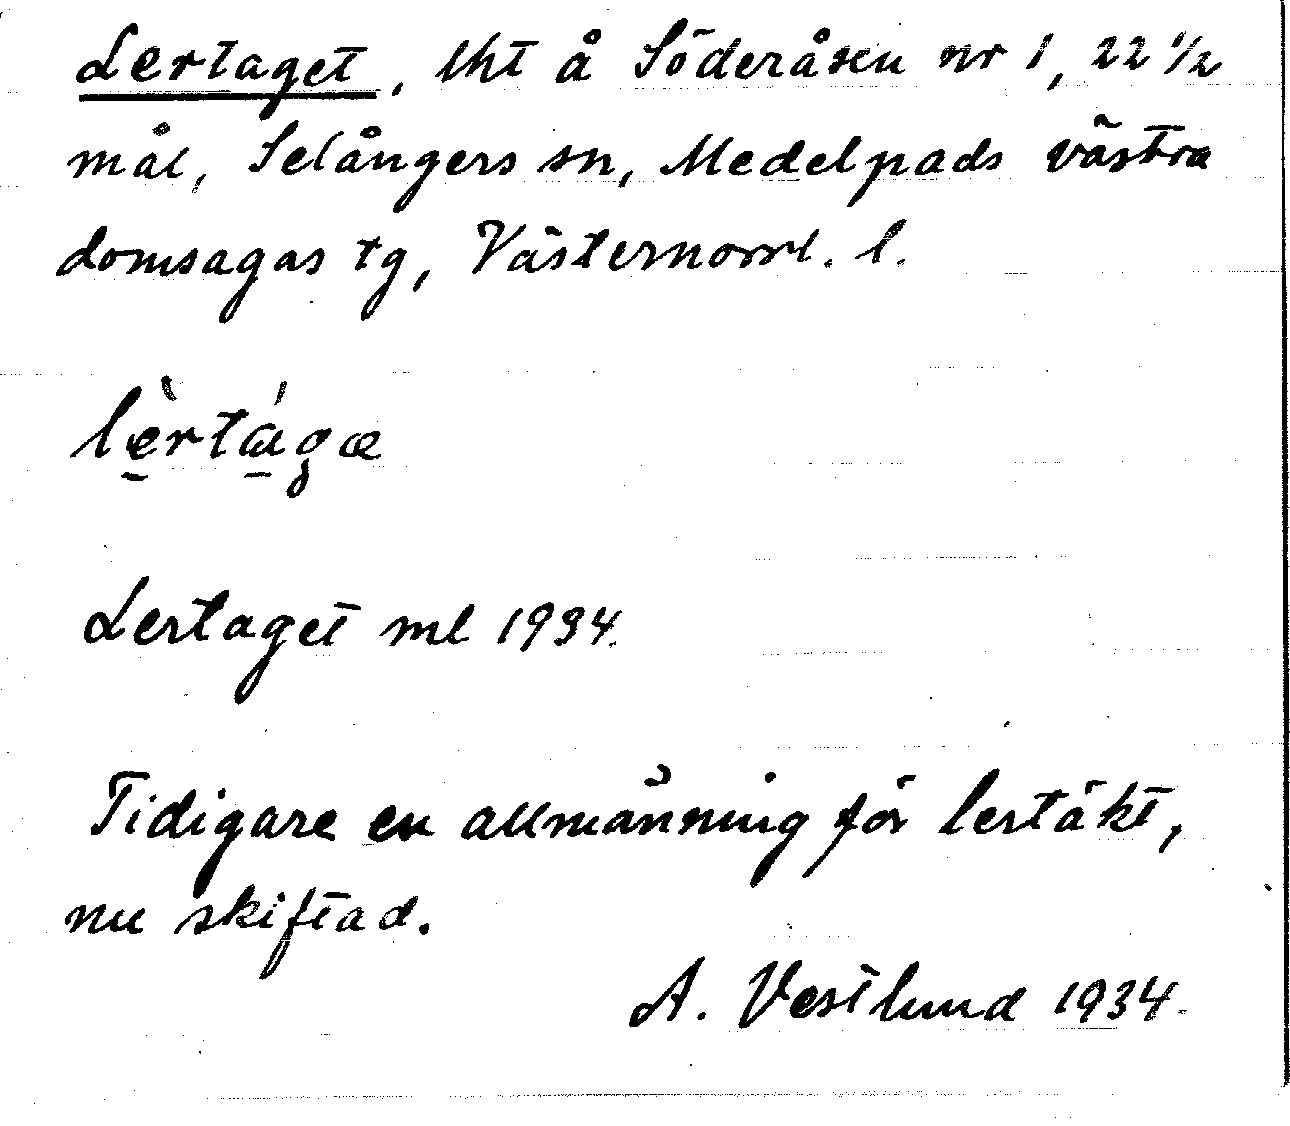 Lertaget, lht å Söderåsen nr 1, 22 1/2
mål, Selångers sn, Medelpads västra
domsagas tg, Västernorrl. l.
lèrtága
Lertaget ml 1934.
Tidigare en allmänning för lertäkt,
nu skiftad.
A. Vestlund 1934.